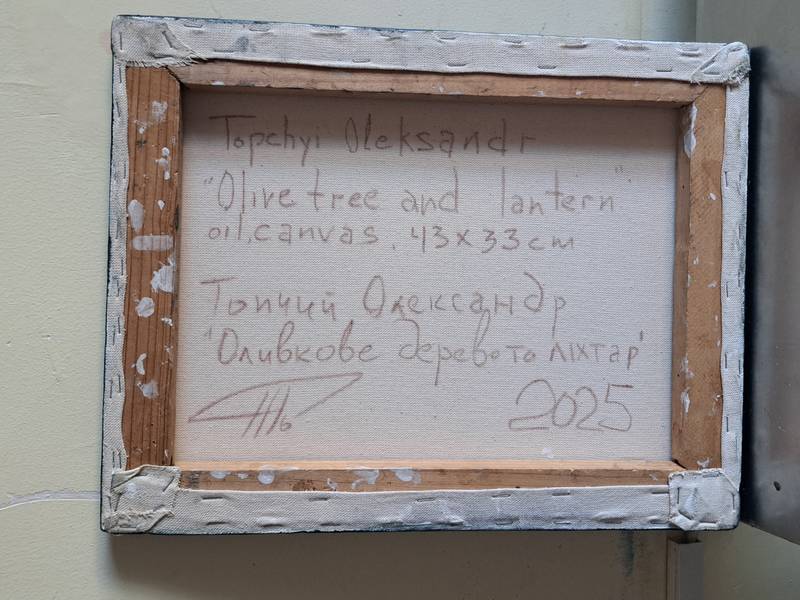 Topchyi Oleksandr
"Olive tree and lantern"
oil, canvas, 43x33cm
Топчий Олександр
"Оливкове дерево та ліхтар"
2025